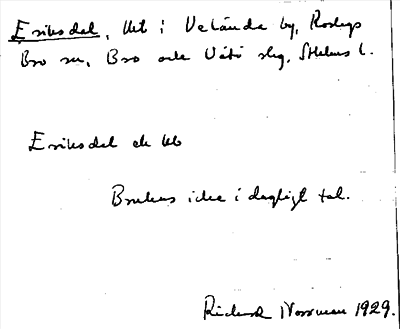 Eriksdal, lht i Vetånda by, Roslags
Bro sn, Bro och Vätö slg, Sthlms l.
Eriksdal
Brukas icke i dagligt tal.
Richard Norrman 1929.